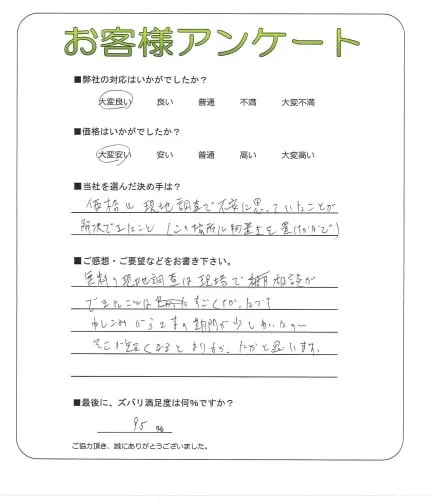 お客様アンケート
■弊社の対応はいかがでしたか?
大変良い 良い 普通 不満 大変不満
■価格はいかがでしたか?
大変安い 安い 普通 高い 大変高い
■当社を選んだ決め手は?
価格と現地調査で不安に思っていたことが
解決できたこと(この場所に物置を置けるかで)
■ご感想・ご要望などをお書き下さい。
無料の現地調査は現場で 相談が
できたことは すごくよかったです
から工事の期間が少し
そこが短くなるとよりよかったかと思います。
■最後に、ズバリ満足度は何%ですか?
95 %
ご協力頂き、誠にありがとうございました。